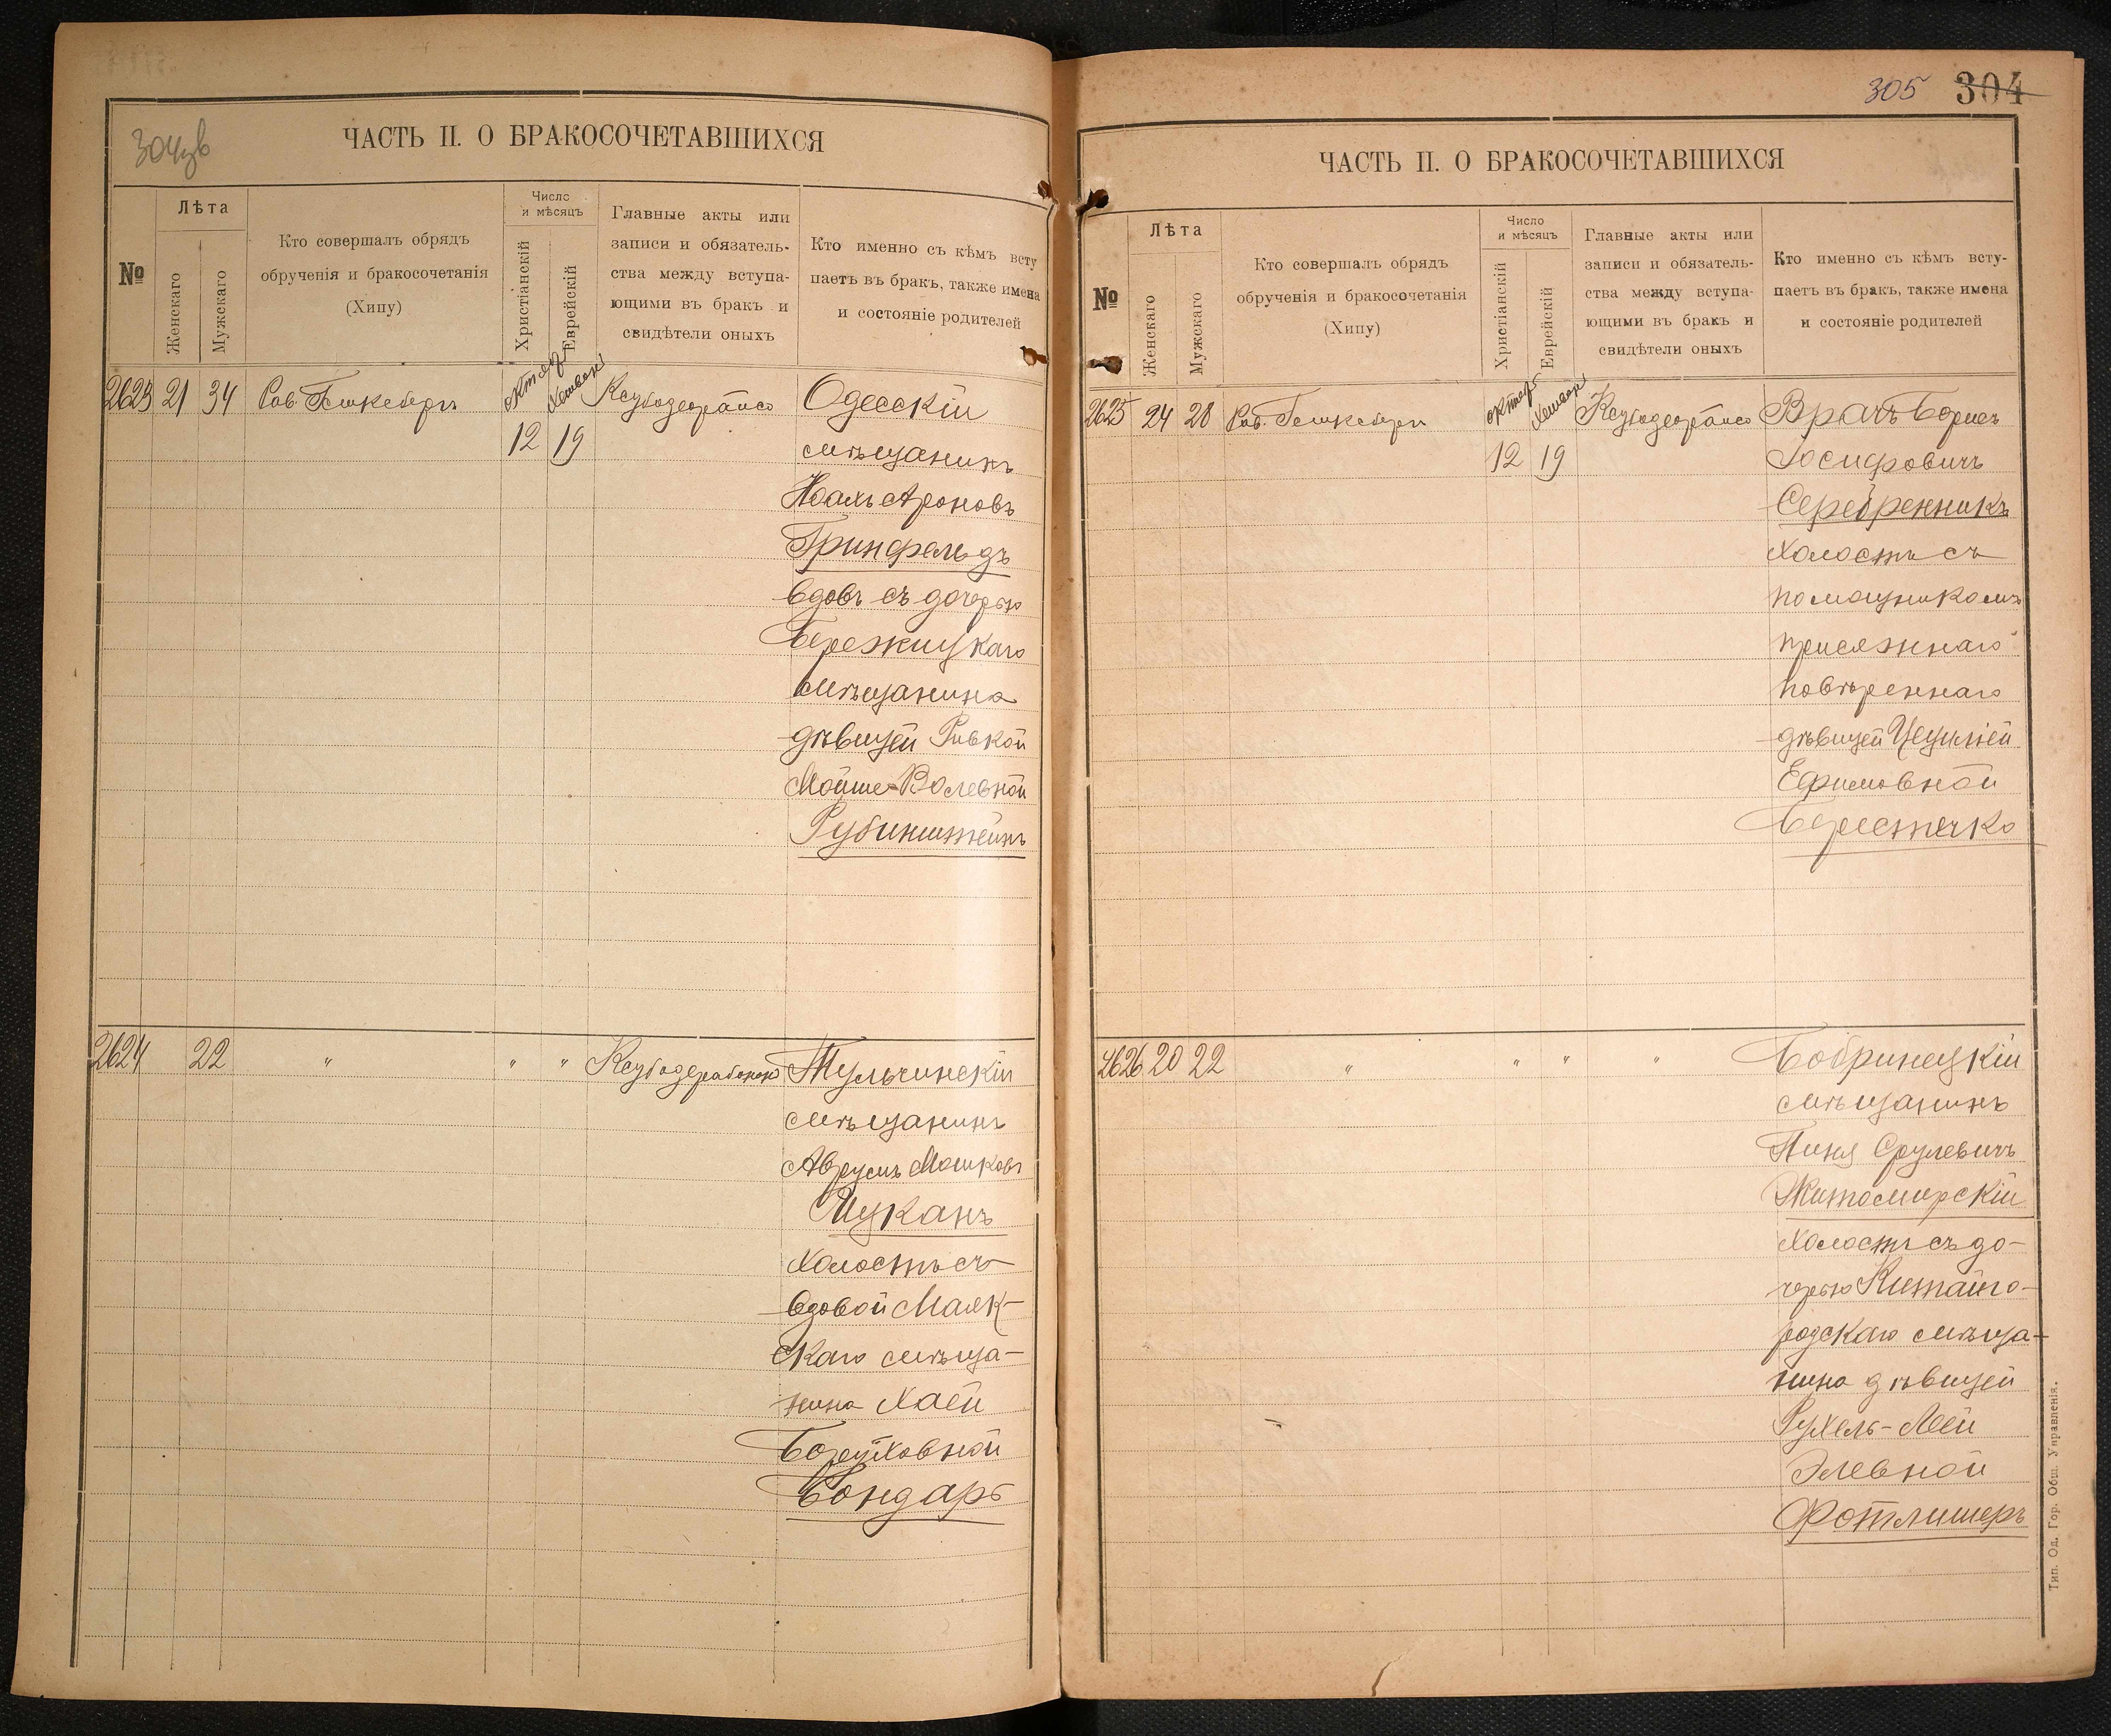 304 зв
ЧАСТЬ II. О БРАКОСОЧЕТАВШИХСЯ
№
Лѣта
Женскаго
Мужскаго
Кто совершалъ обрядъ
обрученія и бракосочетанія
(Хипу)
Число
и мѣсяцъ
Христіанскій
Еврейскій
Главные акты или
записи и обязатель-
ства между вступа-
ющими въ бракъ и
свидѣтели оныхъ
Кто именно съ кѣмъ всту
паетъ въ бракъ, также имена
и состояніе родителей
2623 21 34 Рав.
12 19
Одесскій
мѣщанинъ
Ноахъ Ароновъ
Гринфельдъ
вдовъ съ дочерью
Бережицкаго
мѣщанина
дѣвицей Ривкой
Мойше-Волевной
Рубинштейнъ
2624 22 " " "
Тульчинскій
мѣщанинъ
Аврумъ Мошковъ
Цуканъ
холостъ съ
вдовой Маяк-
скаго мѣща-
нина Хаей
Боруховной
Бондарь
305 304
ЧАСТЬ II. О БРАКОСОЧЕТАВШИХСЯ
№
Лѣта
Женскаго
Мужскаго
Кто совершалъ обрядъ
обрученія и бракосочетанія
(Хипу)
Число
и мѣсяцъ
Христіанскій
Еврейскій
Главные акты или
записи и обязатель-
ства между вступа-
ющими въ бракъ и
свидѣтели оныхъ
Кто именно съ кѣмъ всту-
паетъ въ бракъ, также имена
и состояніе родителей
2625 24 28 Рав.
12 19
Врачъ Борисъ
Іосифовичъ
Серебренникъ
холостъ съ
помощникомъ
присяжнаго
повѣреннаго
дѣвицей Цециліей
Ефимовной
Берестечко
2626 20 22 " " " "
Бобринецкій
мѣщанинъ
Пиня Срулевичъ
Житомирскій
холостъ съ до-
черью Китайго-
родскаго мѣща-
нина дѣвицей
Рухель-Леей
Элевной
Фотлишеръ
Тип. Од. Гор. Общ. Управленія.